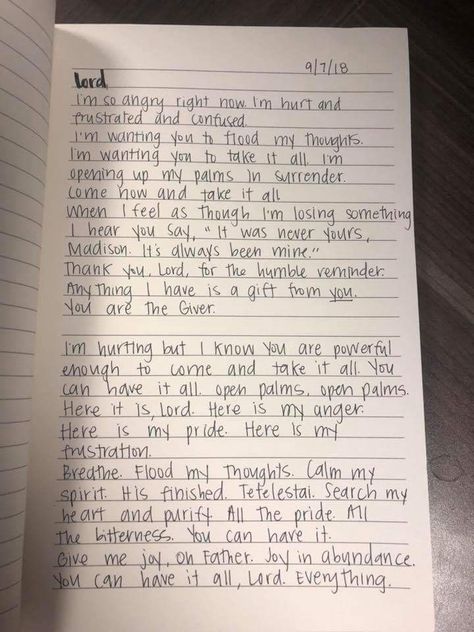 9/7/18
Lord
I'm so angry right now. I'm hurt and
frustrated and confused.
I'm wanting you to flood my thoughts.
I'm wanting you to take it all. I'm
opening up my palms in surrender.
Come now and take it all
When I feel as though I'm losing something
I hear you say, "It was never yours,
Madison. It's always been mine."
Thank you, Lord, for the humble reminder.
Anything I have is a gift from you.
You are the Giver.
I'm hurting but I know you are powerful
enough to come and take it all. You
can have it all. open palms, open palms.
Here it is, Lord. Here is my anger.
Here is my pride. Here is my
frustration.
Breathe. Flood my thoughts. Calm my
spirit. It is finished. Tetelestai. Search my
heart and purify. All the pride. All
the bitterness. You can have it.
Give me joy, Oh Father. Joy in abundance.
You can have it all, Lord. Everything.